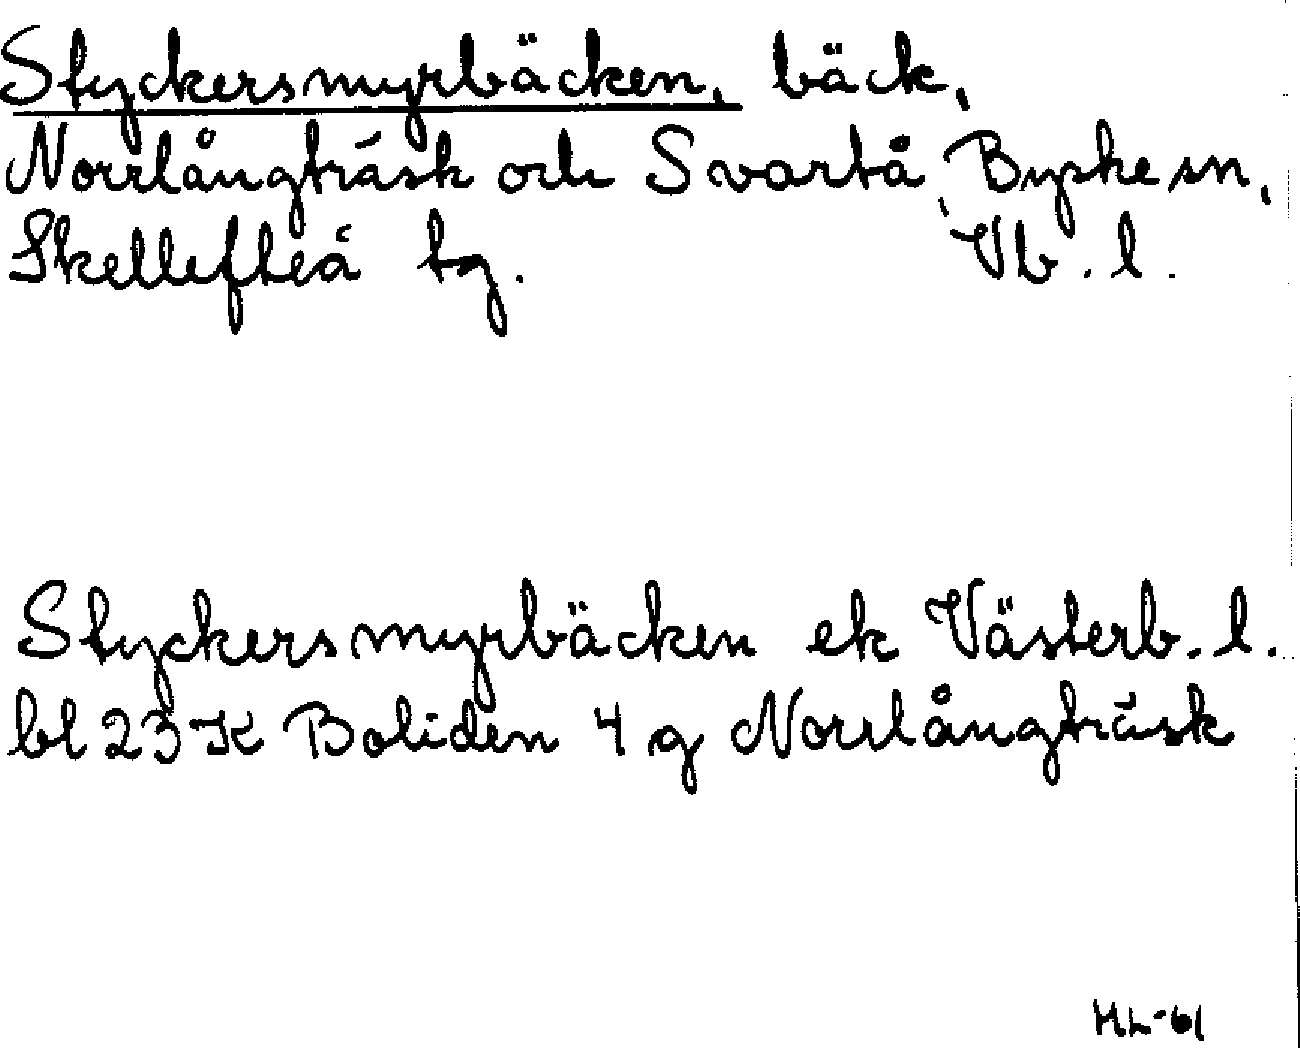 Styckersmyrbäcken, bäck,
Norrlångträsk och Svartå, Byske sn,
Skellefteå tg. Vb. l.
Styckersmyrbäcken ek Västerb. l.
bl 23 K Boliden 4 g Norrlångträsk
HL-61